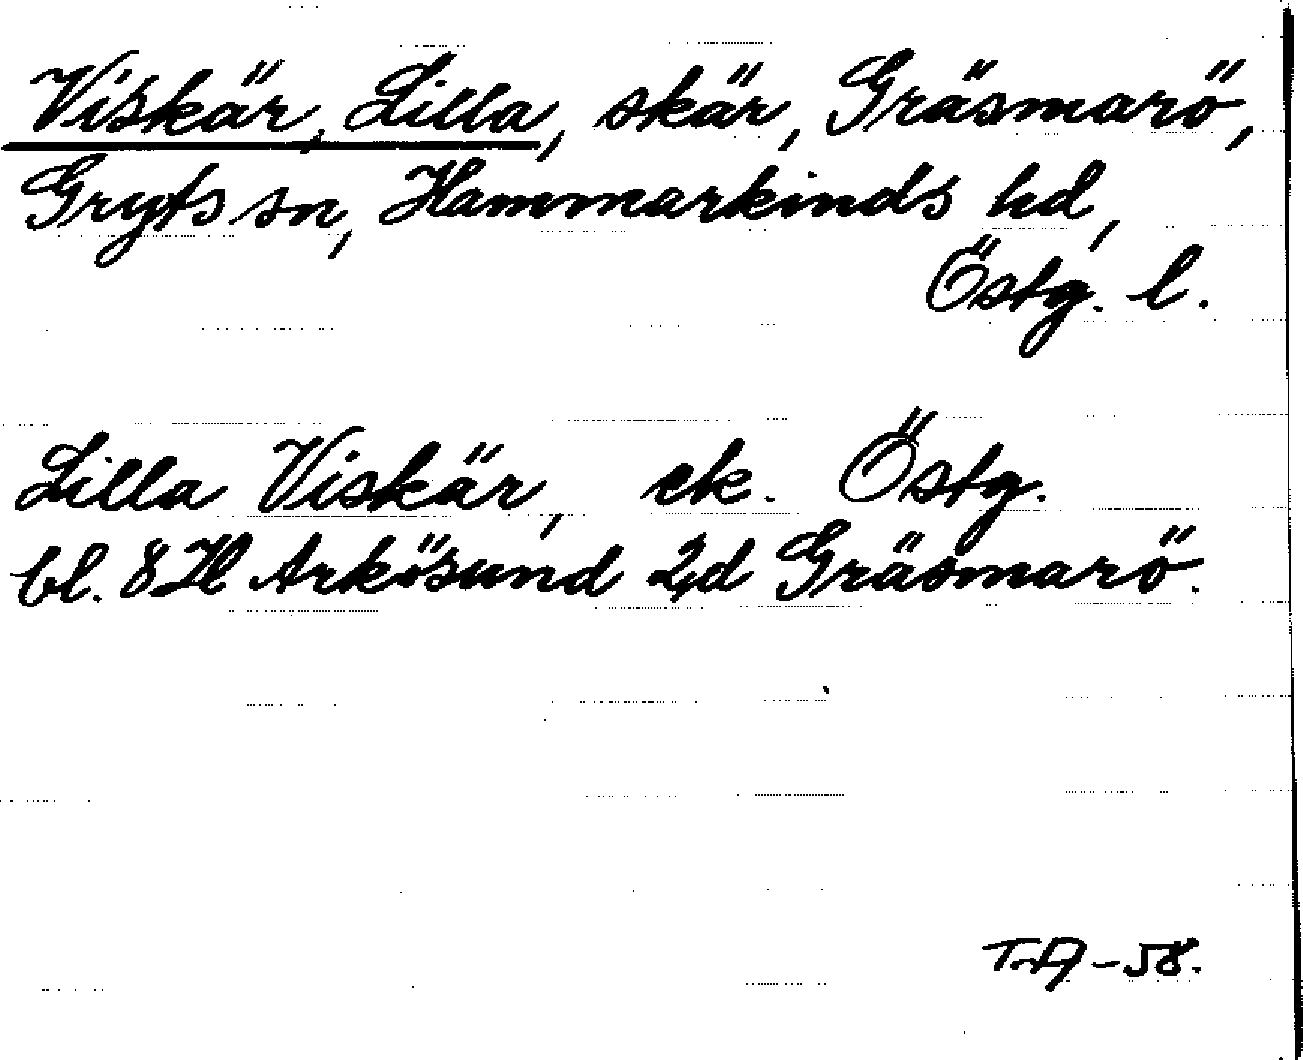 Viskär, Lilla, skär, Gräsmarö,
Gryts sn, Hammarkinds hd,
Östg. l.
Lilla Viskär, ek. Östg.
bl. 8H Arkösund 2d Gräsmarö.
T.A-58.